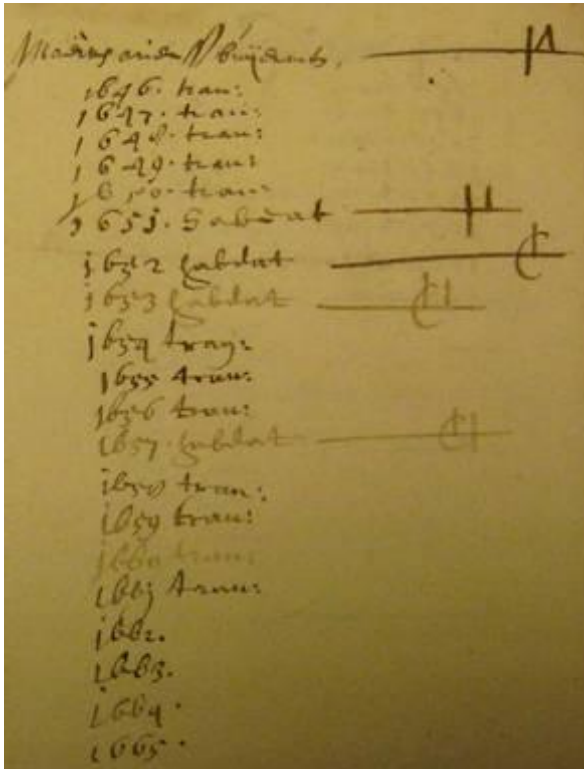 1646. tran:
1647. tran:
1648. tran:
1649. tran:
1650. tran:
1651. Sabdat
1652 Sabdat
1653 Sabdat
1654 tran:
1655 tran:
1656 tran:
1657. Sabdat
1658 tran:
1659 tran:
1660 tran:
1661 tran:
1662.
1663.
1664.
1665.